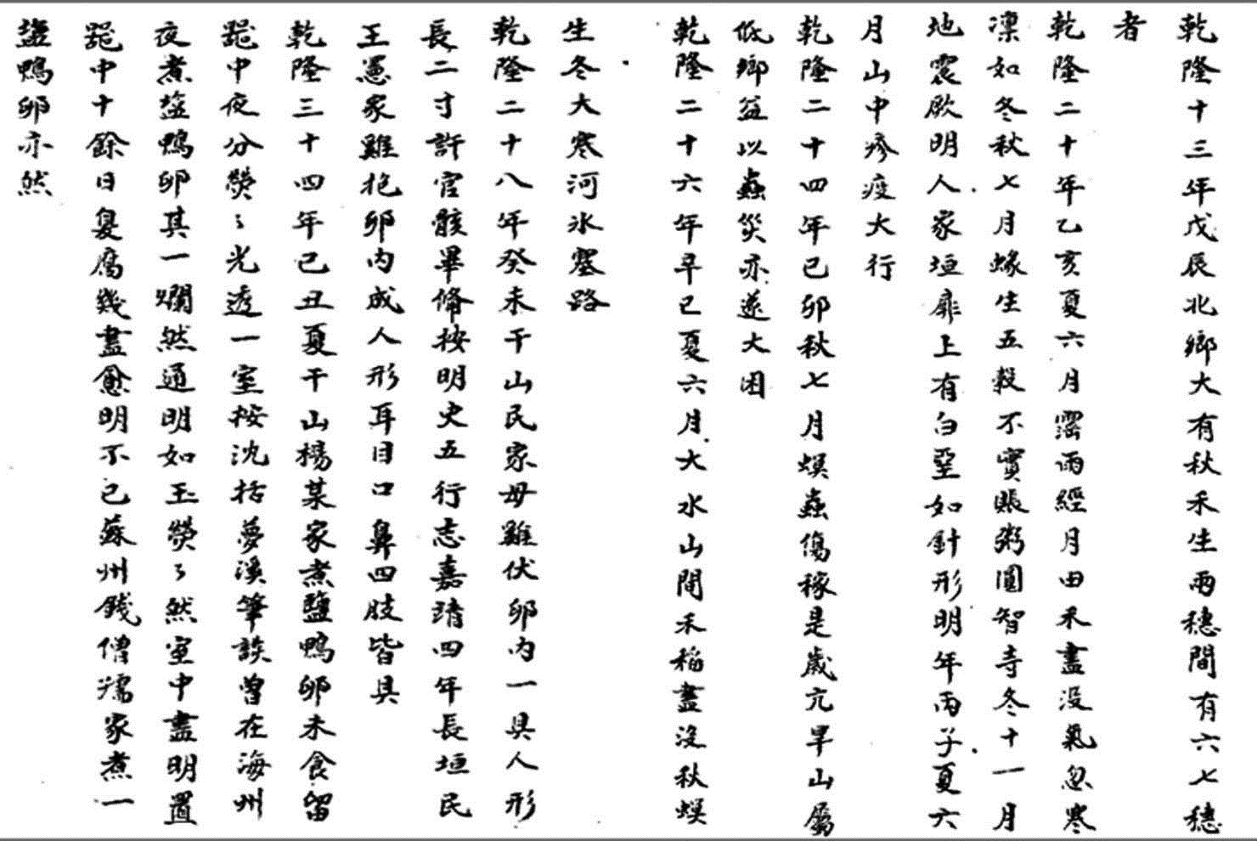 乾隆十三年戊辰北鄉大有秋禾生兩穗間有六七穗
者
乾隆二十年乙亥夏六月霪雨經月田禾盡没氣忽寒
凜如冬秋七月蝝生五穀不實賬粥圓智寺冬十一月
地震厥明人家垣扉上有白堊如針形明年丙子夏六
月山中疹疫大行
乾隆二十四年己卯秋七月螟蟲傷稼是歲亢旱山屬
低鄉益以蟲災亦遂大困
乾隆二十六年辛巳夏六月大水山間禾稻盡沒秋螟
生冬大寒河氷塞路
乾隆二十八年癸未干山民家母雞伏卵内一具人形
長二寸許官骸畢俻按明史五行志嘉靖四年長垣民
王憲家雞抱卵内成人形耳目口鼻四肢皆具
乾隆三十四年己丑夏干山楊某家煮鹽鴨卵未食留
甌中夜分熒〻光透一室按沈括夢溪筆談曾在海州
夜煮盐鴨卵其一爛然通明如玉熒〻然室中盡明置
甌中十餘日臭腐幾盡愈明不已蘇州錢僧孺家煮一
盐鴨卵亦然